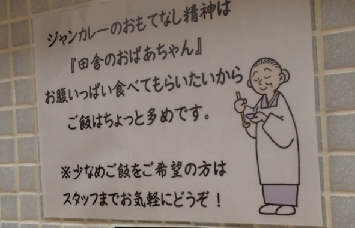 ジャンカレーのおもてなし精神は
『田舎のおばあちゃん』
お腹いっぱい食べてもらいたいから
ご飯はちょっと多めです。
※少なめご飯をご希望の方は
スタッフまでお気軽にどうぞ！